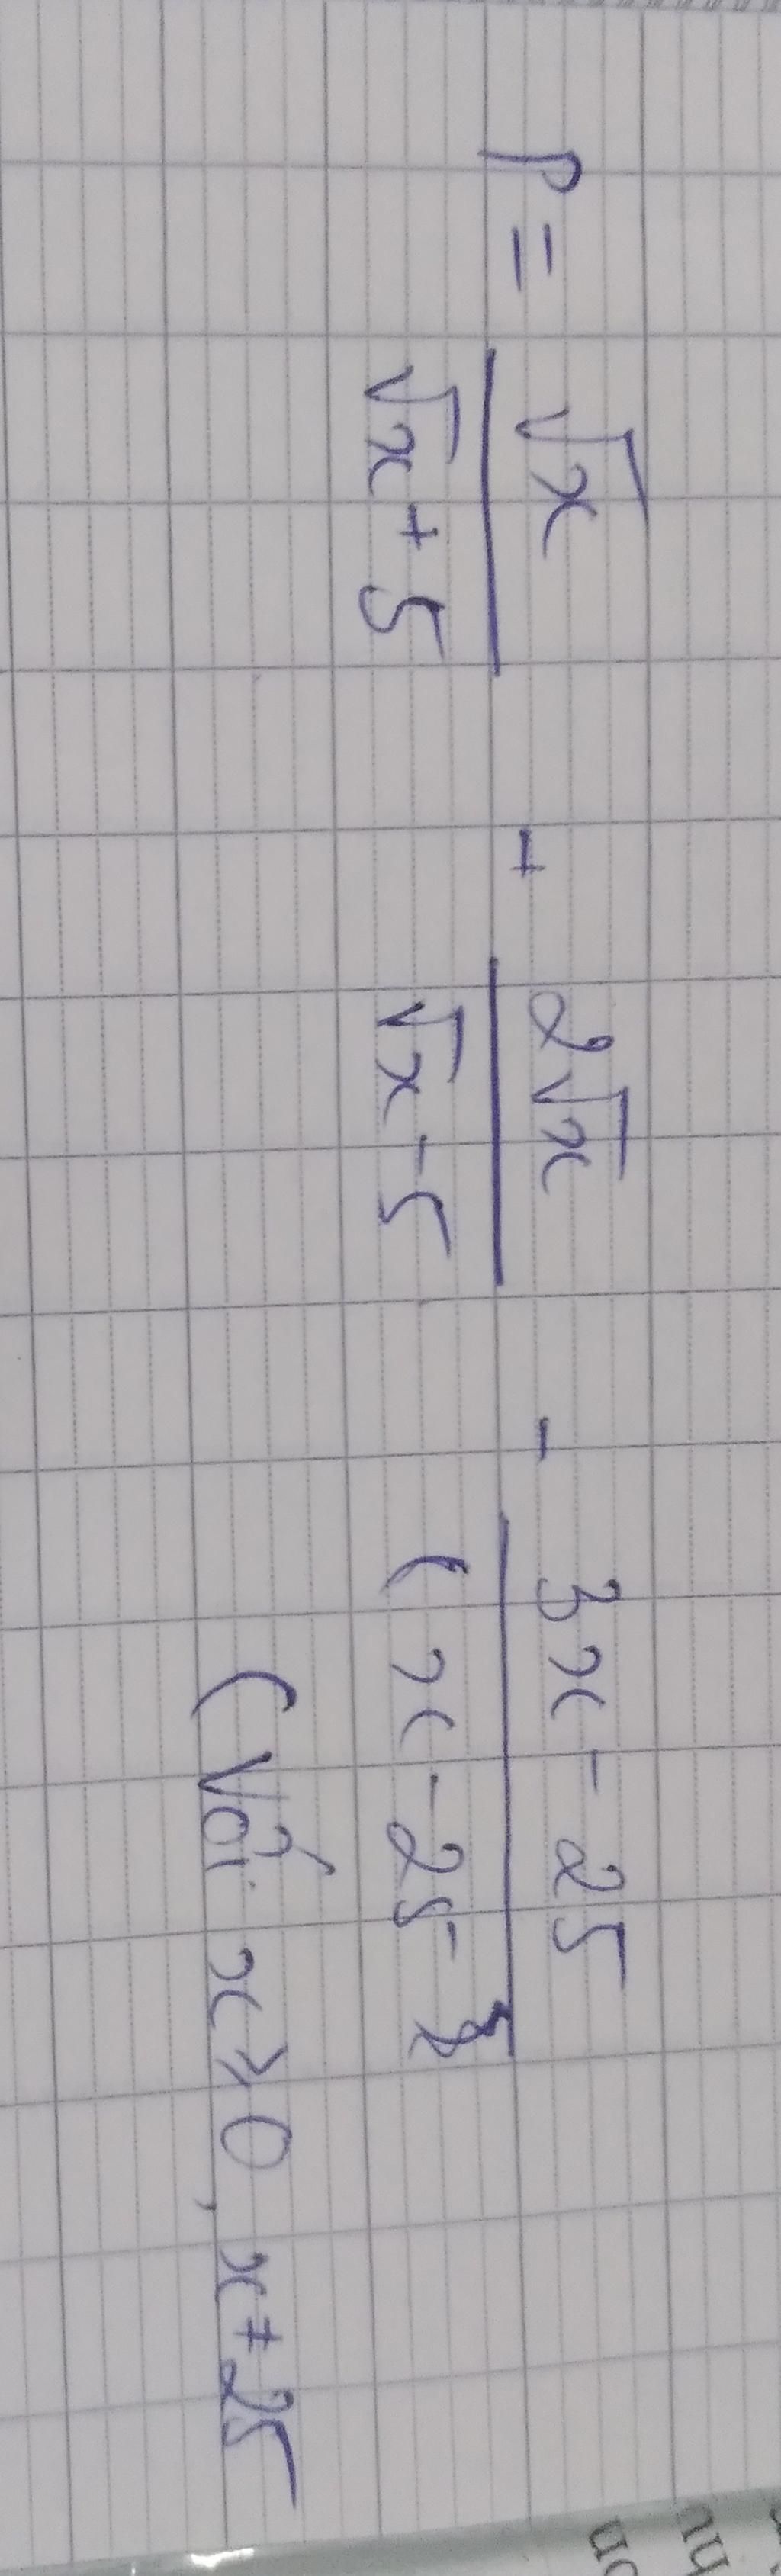 P = √x / (√x + 5) + 2√x / (√x - 5) - (3x - 25) / (x - 25
(Với x ≥ 0, x ≠ 25